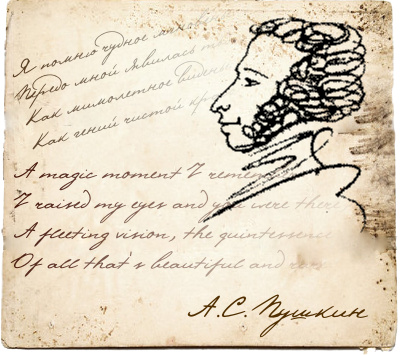 Я помню чудное мгнов
Передо мной явилась т
Как мимолетное видень
Как гений чистой кр
A magic moment I remem
I raised my eyes and you were there
A fleeting vision, the quintessence
Of all that's beautiful and
А.С. Пушкин